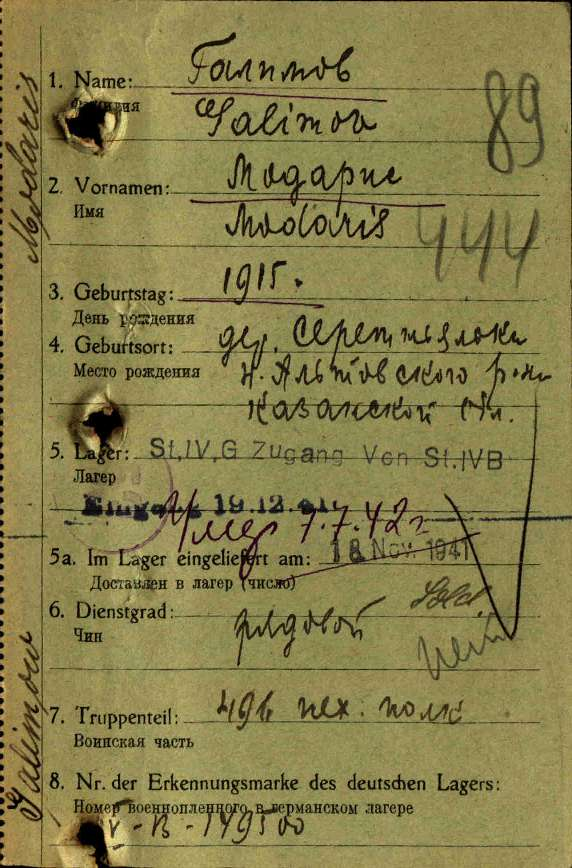 1. Name: Галимов
Фамилия
Galimov
89
2. Vornamen: Модарис
Имя
Modaris
444
3. Geburtstag: 1915.
День рождения
4. Geburtsort: дер.
Место рождения
Казанской обл.
5. Lager: St,IV,G Zugang Von St.IVB
Лагер
Eingang 19.12.41
Умер 7.7.42г
5a. Im Lager eingeliefert am: 18 Nov. 1941
Доставлен в лагер (число)
6. Dienstgrad: рядовой
Чин
7. Truppenteil: 496 пех. полк
Воинская часть
8. Nr. der Erkennungsmarke des deutschen Lagers:
Номер военнопленного в германском лагере
IV-B-149500
Galimow Modaris